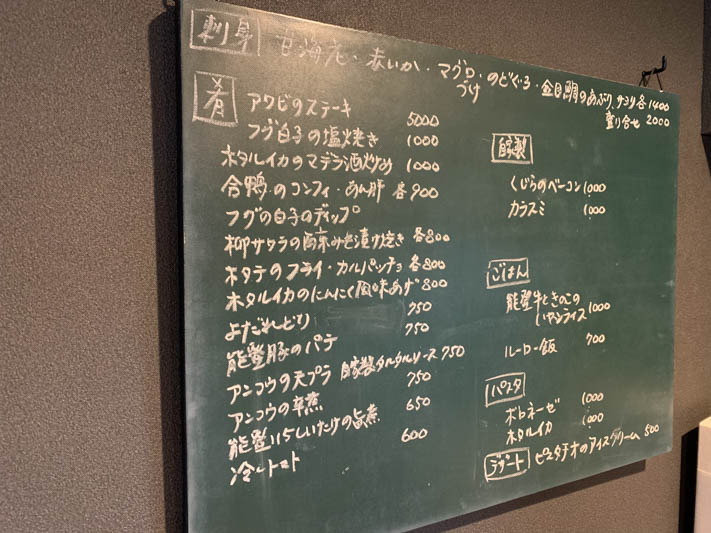 刺身 甘海老・赤いか・マグロづけ・のどぐろ・金目鯛のあぶり、サヨリ 各1400
盛り合せ 2000
肴
アワビのステーキ 5000
フグ白子の塩焼き 1000
ホタルイカのマデラ酒炒め 1000
合鴨のコンフィ・あん肝 各900
フグの白子のディップ
柳サワラの西京みそ漬け焼き 各800
ホタテのフライ・カルパッチョ 各800
ホタルイカのにんにく風味あげ 800
よだれどり 750
能登豚のパテ 750
アンコウの天プラ 自家製タルタルソース 750
アンコウの辛煮 750
能登115しいたけの旨煮 650
冷しトマト 600
自家製
くじらのベーコン 1000
カラスミ 1000
ごはん
能登牛ときのこの
ハヤシライス 1000
ルーロー飯 700
パスタ
ボロネーゼ 1000
ホタルイカ 1000
デザート ピスタチオのアイスクリーム 500